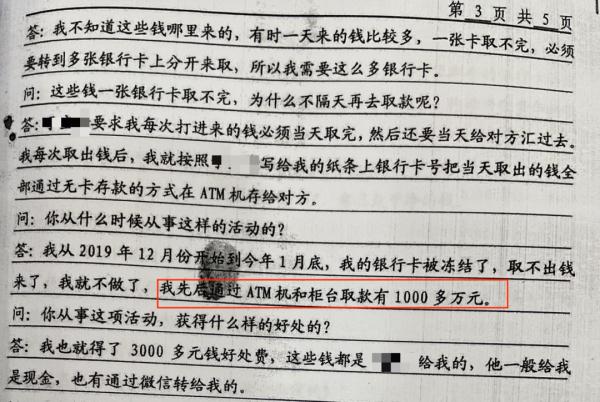 第 3 页 共 5 页
答：我不知道这些钱哪里来的，有时一天来的钱比较多，一张卡取不完，必须
要转到多张银行卡上分开来取，所以我需要这么多银行卡。
问：这些钱一张银行卡取不完，为什么不隔天再去取款呢？
答：要求我每次打进来的钱必须当天取完，然后还要当天给对方汇过去。
我每次取出钱后，我就按照写给我的纸条上银行卡号把当天取出的钱全
部通过无卡存款的方式在 ATM 机存给对方。
问：你从什么时候从事这样的活动的？
答：我从 2019 年 12 月份开始到今年 1 月底，我的银行卡被冻结了，取不出钱
来了，我就不做了，我先后通过 ATM 机和柜台取款有 1000 多万元。
问：你从事这项活动，获得什么样的好处的？
答：我也就得了 3000 多元钱好处费，这些钱都是 给我的，他一般给我
是现金，也有通过微信转给我的。